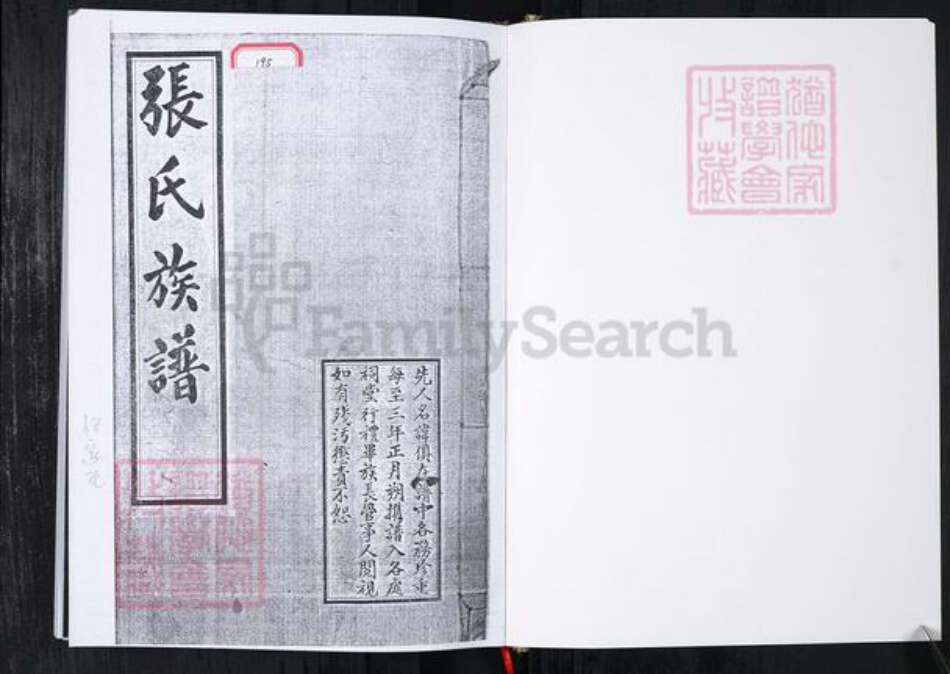 猶他家
譜學會
收藏
195
張氏族譜
先人名諱俱在譜中各務珍重
每至三年正月朔攜譜入各處
祠堂行禮畢族長管事人閱視
如有殘污懲責不恕
FamilySearch